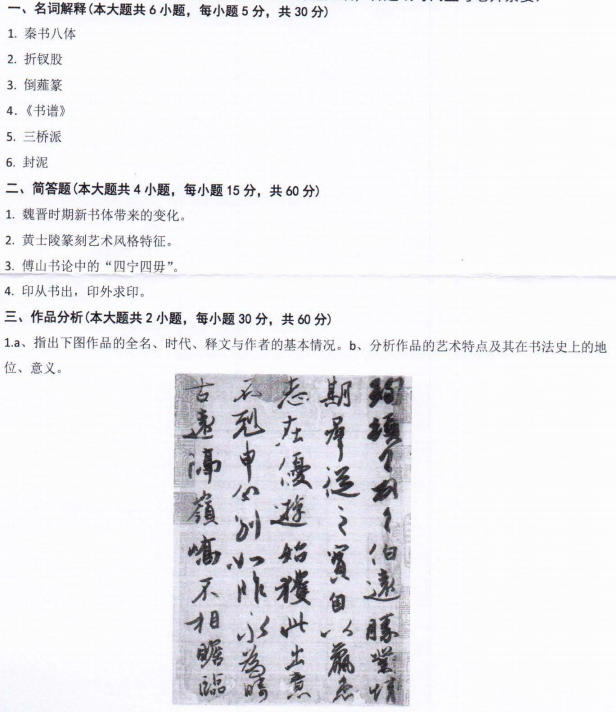 一、名词解释(本大题共 6 小题，每小题 5 分，共 30 分)
1. 秦书八体
2. 折钗股
3. 倒薤篆
4.《书谱》
5. 三桥派
6. 封泥
二、简答题(本大题共 4 小题，每小题 15 分，共 60 分)
1. 魏晋时期新书体带来的变化。
2. 黄士陵篆刻艺术风格特征。
3. 傅山书论中的“四宁四毋”。
4. 印从书出，印外求印。
三、作品分析(本大题共 2 小题，每小题 30 分，共 60 分)
1.a、指出下图作品的全名、时代、释文与作者的基本情况。b、分析作品的艺术特点及其在书法史上的地
位、意义。
珣頓首頓首伯遠勝業情
期羣從之寶自以羸患
志在優遊始獲此出意
不剋申分別如昨永為疇
古遠隔嶺嶠不相瞻臨